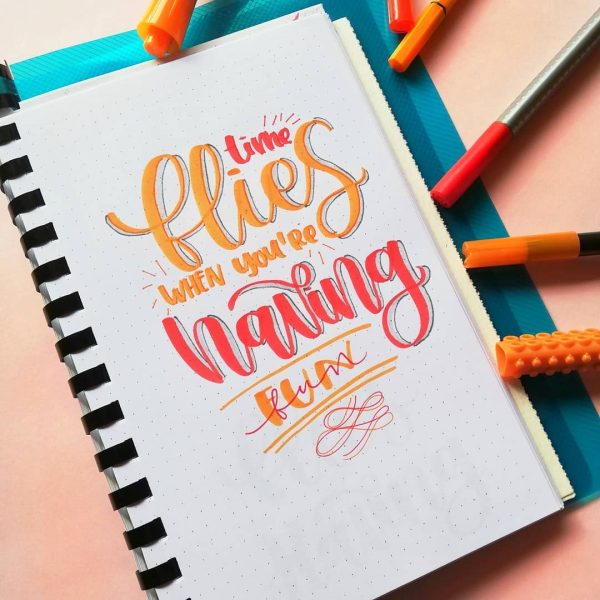 time
flies
WHEN YOU'RE
Having
FUN
fun